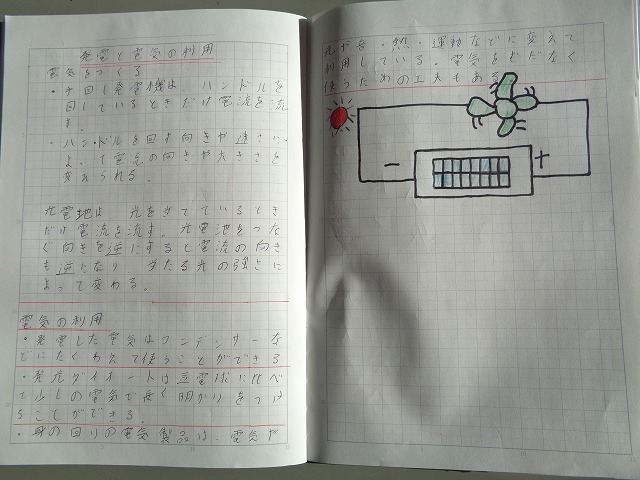 発電と電気の利用
電気をつくる
・手回し発電機は、ハンドルを
回しているときだけ電流を流
す。
・ハンドルを回す向きや速さに
よって電気の向きや大きさを
変えられる。
光電地は、光を当てているとき
だけ電流を流す。光電池をつな
ぐ向きを逆にすると電流の向き
も逆になり、当たる光の強さに
よって変わる。
電気の利用
・発電した電気はコンデンサーな
どにたくわえて使うことができる
・発光ダイオードは豆電球に比べ
て少しの電気で長く明かりをつけ
ることができる。
・身の回りの電気製品は、電気を
光や音・熱・運動などに変えて
利用している。電気をむだなく
使うための工夫もある
－
＋